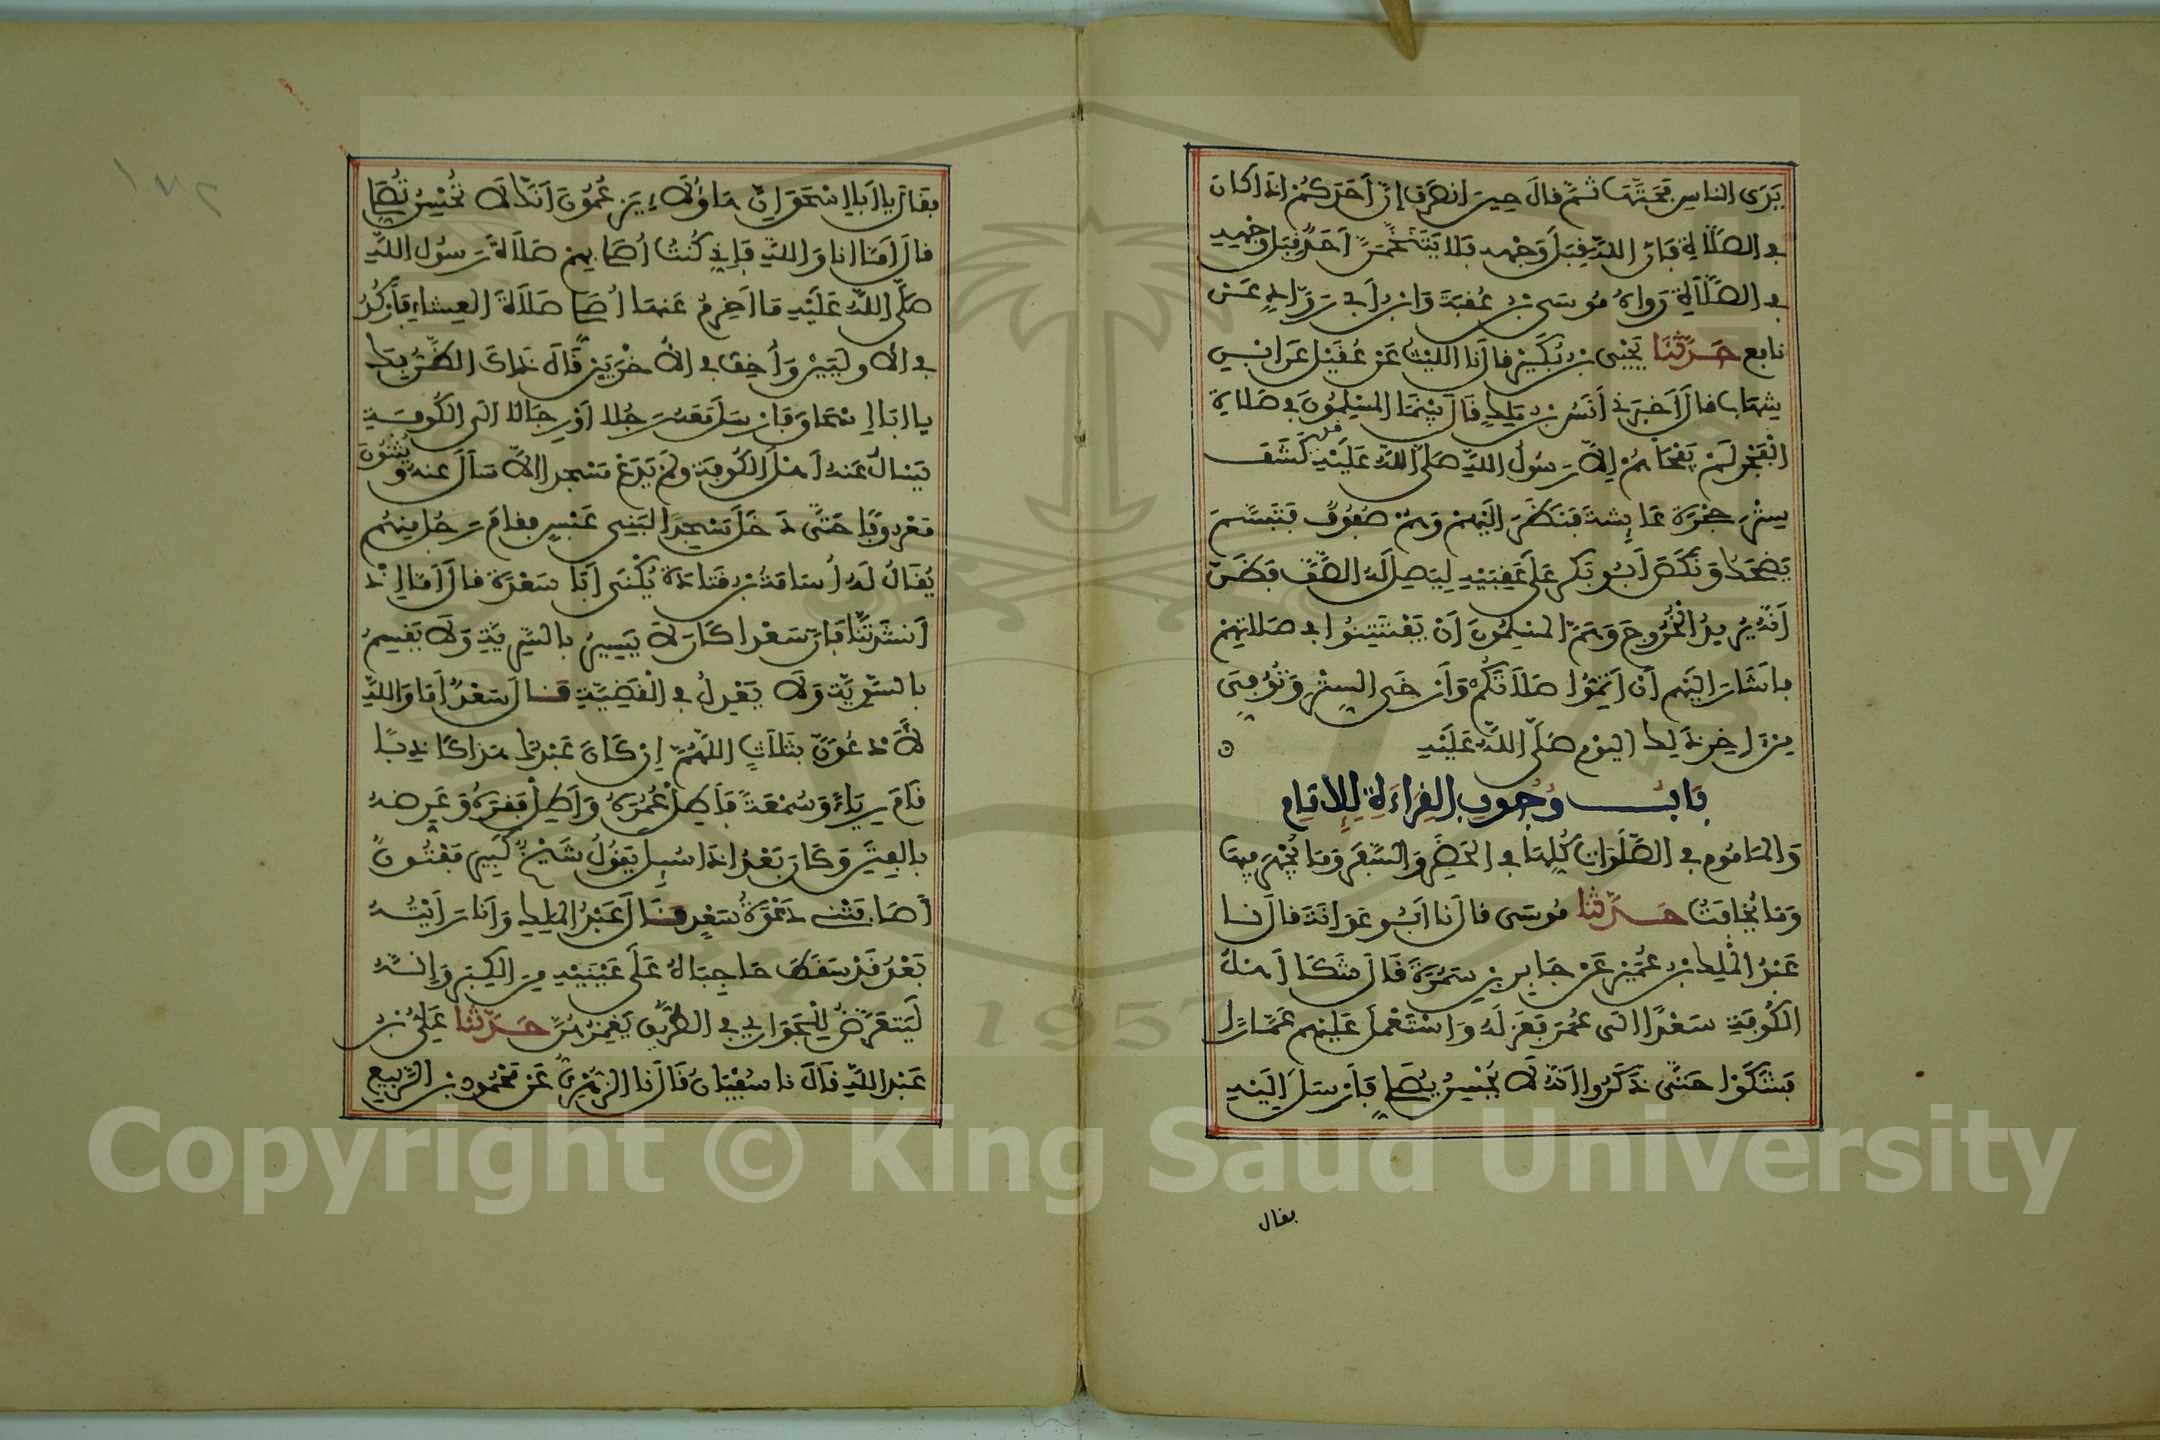 يَدَىِ الناسِ فَحَتَّهَا ثُمَّ قال حِينَ انصَرَفَ إنَّ أَحَدَكُمْ إذَا كانَ
في الصَّلَاةِ فَإنَّ اللهَ قِبَلَ وَجْهِهِ فَلا يَتَنَخَّمَنَّ أَحَدٌ قِبَلَ وَجْهِهِ
في الصَّلَاةِ رَوَاهُ مُوسَى بْنُ عُقبَةَ وَابْنُ أَبي رَوَّادٍ عَنْ
نافِع حَدَّثَنَا يَحْيَى بْنُ بُكَيْرٍ قال نَا الليْثُ عَنْ عُقَيْلٍ عَنِ ابْنِ
شِهَابٍ قال أَخبَرَني أَنَسُ بْنُ مَلِكٍ قَالَ بَيْنَمَا المُسْلِمُونَ في صَلاةِ
الْفَجْرِ لَمْ يَفْجَأْهُمْ إلاَّ رَسُولُ اللهِ صَلَّى اللهُ عَلَيْهِ قد كَشَفَ
سِتْرَ حُجْرَةِ عَائِشَةَ فَنَظَرَ إلَيْهِمْ وَهُمْ صُفُوفٌ فَتَبَسَّمَ
يَضْحَكُ وَنَكَصَ أَبُو بَكْرٍ عَلَى عَقِبَيْهِ لِيَصِلَ لَهُ الصَّفَّ فَظَنَّ
أَنَّهُ يُرِيدُ الْخُرُوجَ وَهَمَّ المُسْلِمُونَ أَنْ يَفْتَتِنُوا في صَلاتِهِمْ
فأَشَارَ إلَيْهِم أَنْ أَتِمُّوا صَلَاتَكُمْ وَأَرْخَى السِتْرَ وَتُوُفِيَ
مِنَ اخِرِ ذَلِكَ اليَوْمِ صَلَّى اللهُ عَلَيْهِ
بَابُ وُجُوبِ القِرَاءَةِ لِلإمَامِ
وَالمَامُومِ في الصَّلَوَاتِ كُلِّهَا في الحَضَرِ وَالسَّفَرِ وَمَا يُجْهَرُ فِيهَا
وَمَا يُخَافَتُ حَدَّثَنَا مُوسَى قال نَا أَبُو عَوَانَةَ قال نَا
عَبْدُ الْمَلِكِ بْنُ عُمَيْرٍ عَنْ جَابِرِ بْنِ سَمُرَةَ قَالَ شَكَا أَهْلُ
الكُوفَةِ سَعْدًا الَى عُمَرَ فَعَزَلَهُ وَاسْتَعْمَلَ عَلَيْهِم عَمَّارًا
فَشَكَوْا حَتَّى ذَكَرُوا أَنَّهُ لَا يُحْسِنُ يُصَلِّي فَأَرْسَلَ إلَيْهِ
فقال
فَقَالَ يا أَبَا إسْحَقَ إنَّ هَاؤُلَاءِ يَزْعُمُونَ أَنَّكَ لَا تُحْسِنُ تُصَلِّي
قال أَمَّا انا وَاللهِ فَإِنّي كُنْتُ أُصَلِّي بِهِمْ صَلَاةَ رَسُولِ اللهِ
صَلَّى اللهُ عَلَيْهِ مَا أَخْرِمُ عَنْهَا أُصَلِّي صَلَاةَ العِشَاءِ فَأَرْكُدُ
في الأُولَيَيْنِ وَأُخِفُّ في الأُخْرَيَيْنِ قَالَ ذَلِكَ الظَّنُّ بِكَ
يا ابَا إسْحَاقَ فَأَرْسَلَ مَعَهُ رَجُلا أَوْ رِجَالا الَى الكُوفَةِ
يَسْأَلُ عَنهُ أَهْلَ الكُوفَةِ وَلَمْ يَدَعْ مَسْجِدا إلاَّ سَأَلَ عنهُ وَيُثْنُونَ
مَعْرُوفًا حَتَّى دَخَلَ مَسْجِدًا لِبَنِي عَبْسٍ فقامَ رَجُلٌ مِنْهُم
يُقَالُ لَهُ أُسَامَةُ بْنُ قَتَادَةَ يُكْنَى أَبَا سَعْدَةَ قال أَمَّا إذْ
أَنشَدْتَنَا فَإنَّ سَعْدا كَانَ لَا يَسِيرُ بالسَّرِيَّةِ وَلَا يَقْسِمُ
بالسَّوِيَّةِ وَلَا يَعْدِلُ في الْقَضِيَّةِ قَالَ سَعْدٌ أَمَا وَاللهِ
لَأَدْعُوَنَّ بثَلَاثٍ اللَّهُمَّ إنْ كَانَ عَبْدُكَ هَذَا كَاذِبًا
قَامَ رِيَاءً وَسُمْعَةً فَأَطِلْ عُمُرَهُ وَأَطِلْ فَقْرَهُ وَعَرِضْهُ
بالفِتَنِ وَكَانَ بَعْدُ إذَا سُئِلَ يَقُولُ شَيْخٌ كَبِيرٌ مَفْتُونٌ
أَصَابَتْنِي دَعْوَةُ سَعْدٍ قَالَ عَبْدُ المَلِكِ وَأَنَا رَأَيْتُهُ
بَعْدُ قَدْ سَقَطَ حَاجِبَاهُ عَلَى عَيْنَيْهِ مِنَ الكِبَرِ وَإنَّهُ
لَيَتَعَرَّضُ لِلْجَوَارِي في الطُّرُقِ يَغْمِزُهُنَّ حَدَّثَنَا عَلِيُّ بْنُ
عَبْدِ اللهِ قَالَ نا سُفْيَانُ قَالَ نَا الزُّهْرِيُّ عَنْ مَحْمُودِ بْنِ الرَّبِيعِ
١٧٢
Copyright © King Saud University
1957